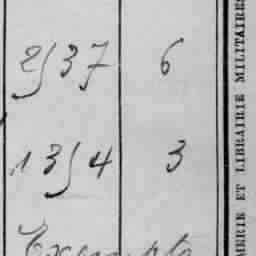 2537 6
1354 3
MERIE ET LIBRAIRIE MILITAIRES